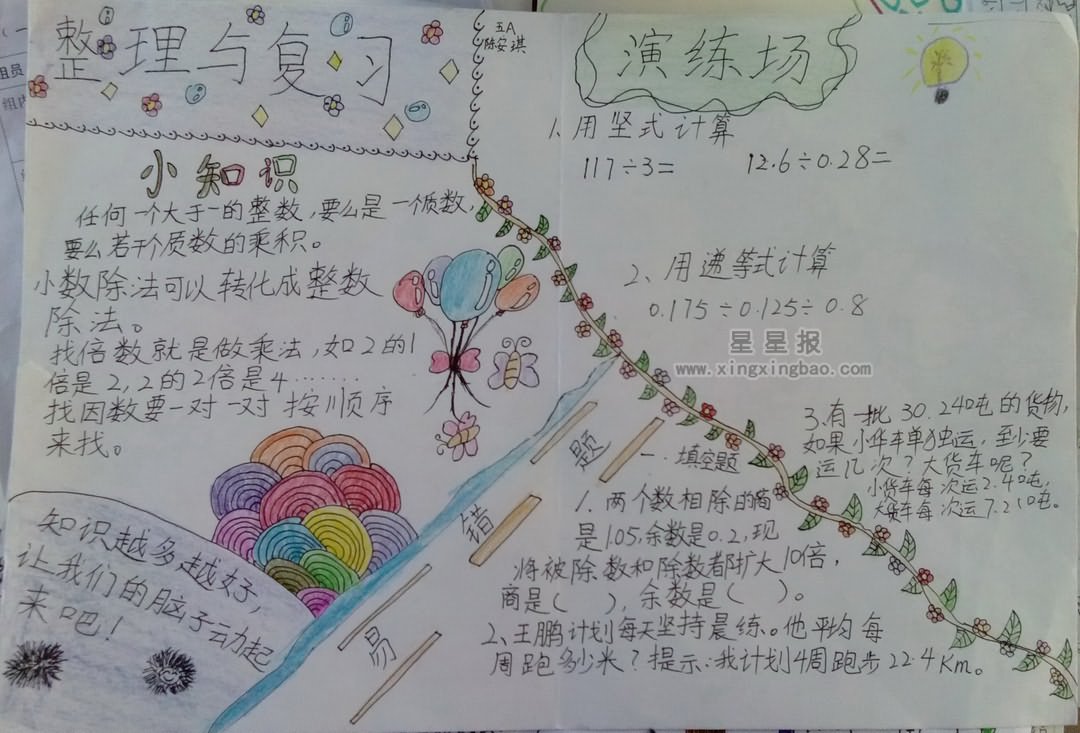 整理与复习
五A
陈安琪
小知识
任何一个大于一的整数，要么是一个质数，
要么若干个质数的乘积。
小数除法可以转化成整数
除法。
找倍数就是做乘法，如2的1
倍是2，2的2倍是4……
找因数要一对一对按顺序
来找。
知识越多越好，
让我们的脑子动起
来吧！
易错题
一、填空题
1、两个数相除的商
是1.05，余数是0.2，现
将被除数和除数都扩大10倍，
商是（ ），余数是（ ）。
2、王鹏计划每天坚持晨练。他平均每
周跑多少米？提示：我计划4周跑步22.4Km。
演练场
1、用坚式计算
117÷3=  12.6÷0.28=
2、用递等式计算
0.175÷0.125÷0.8
星星报
www.xingxingbao.com
3、有一批30.24吨的货物，
如果小货车单独运，至少要
运几次？大货车呢？
小货车每次运2.4吨，
大货车每次运7.2吨。
组员